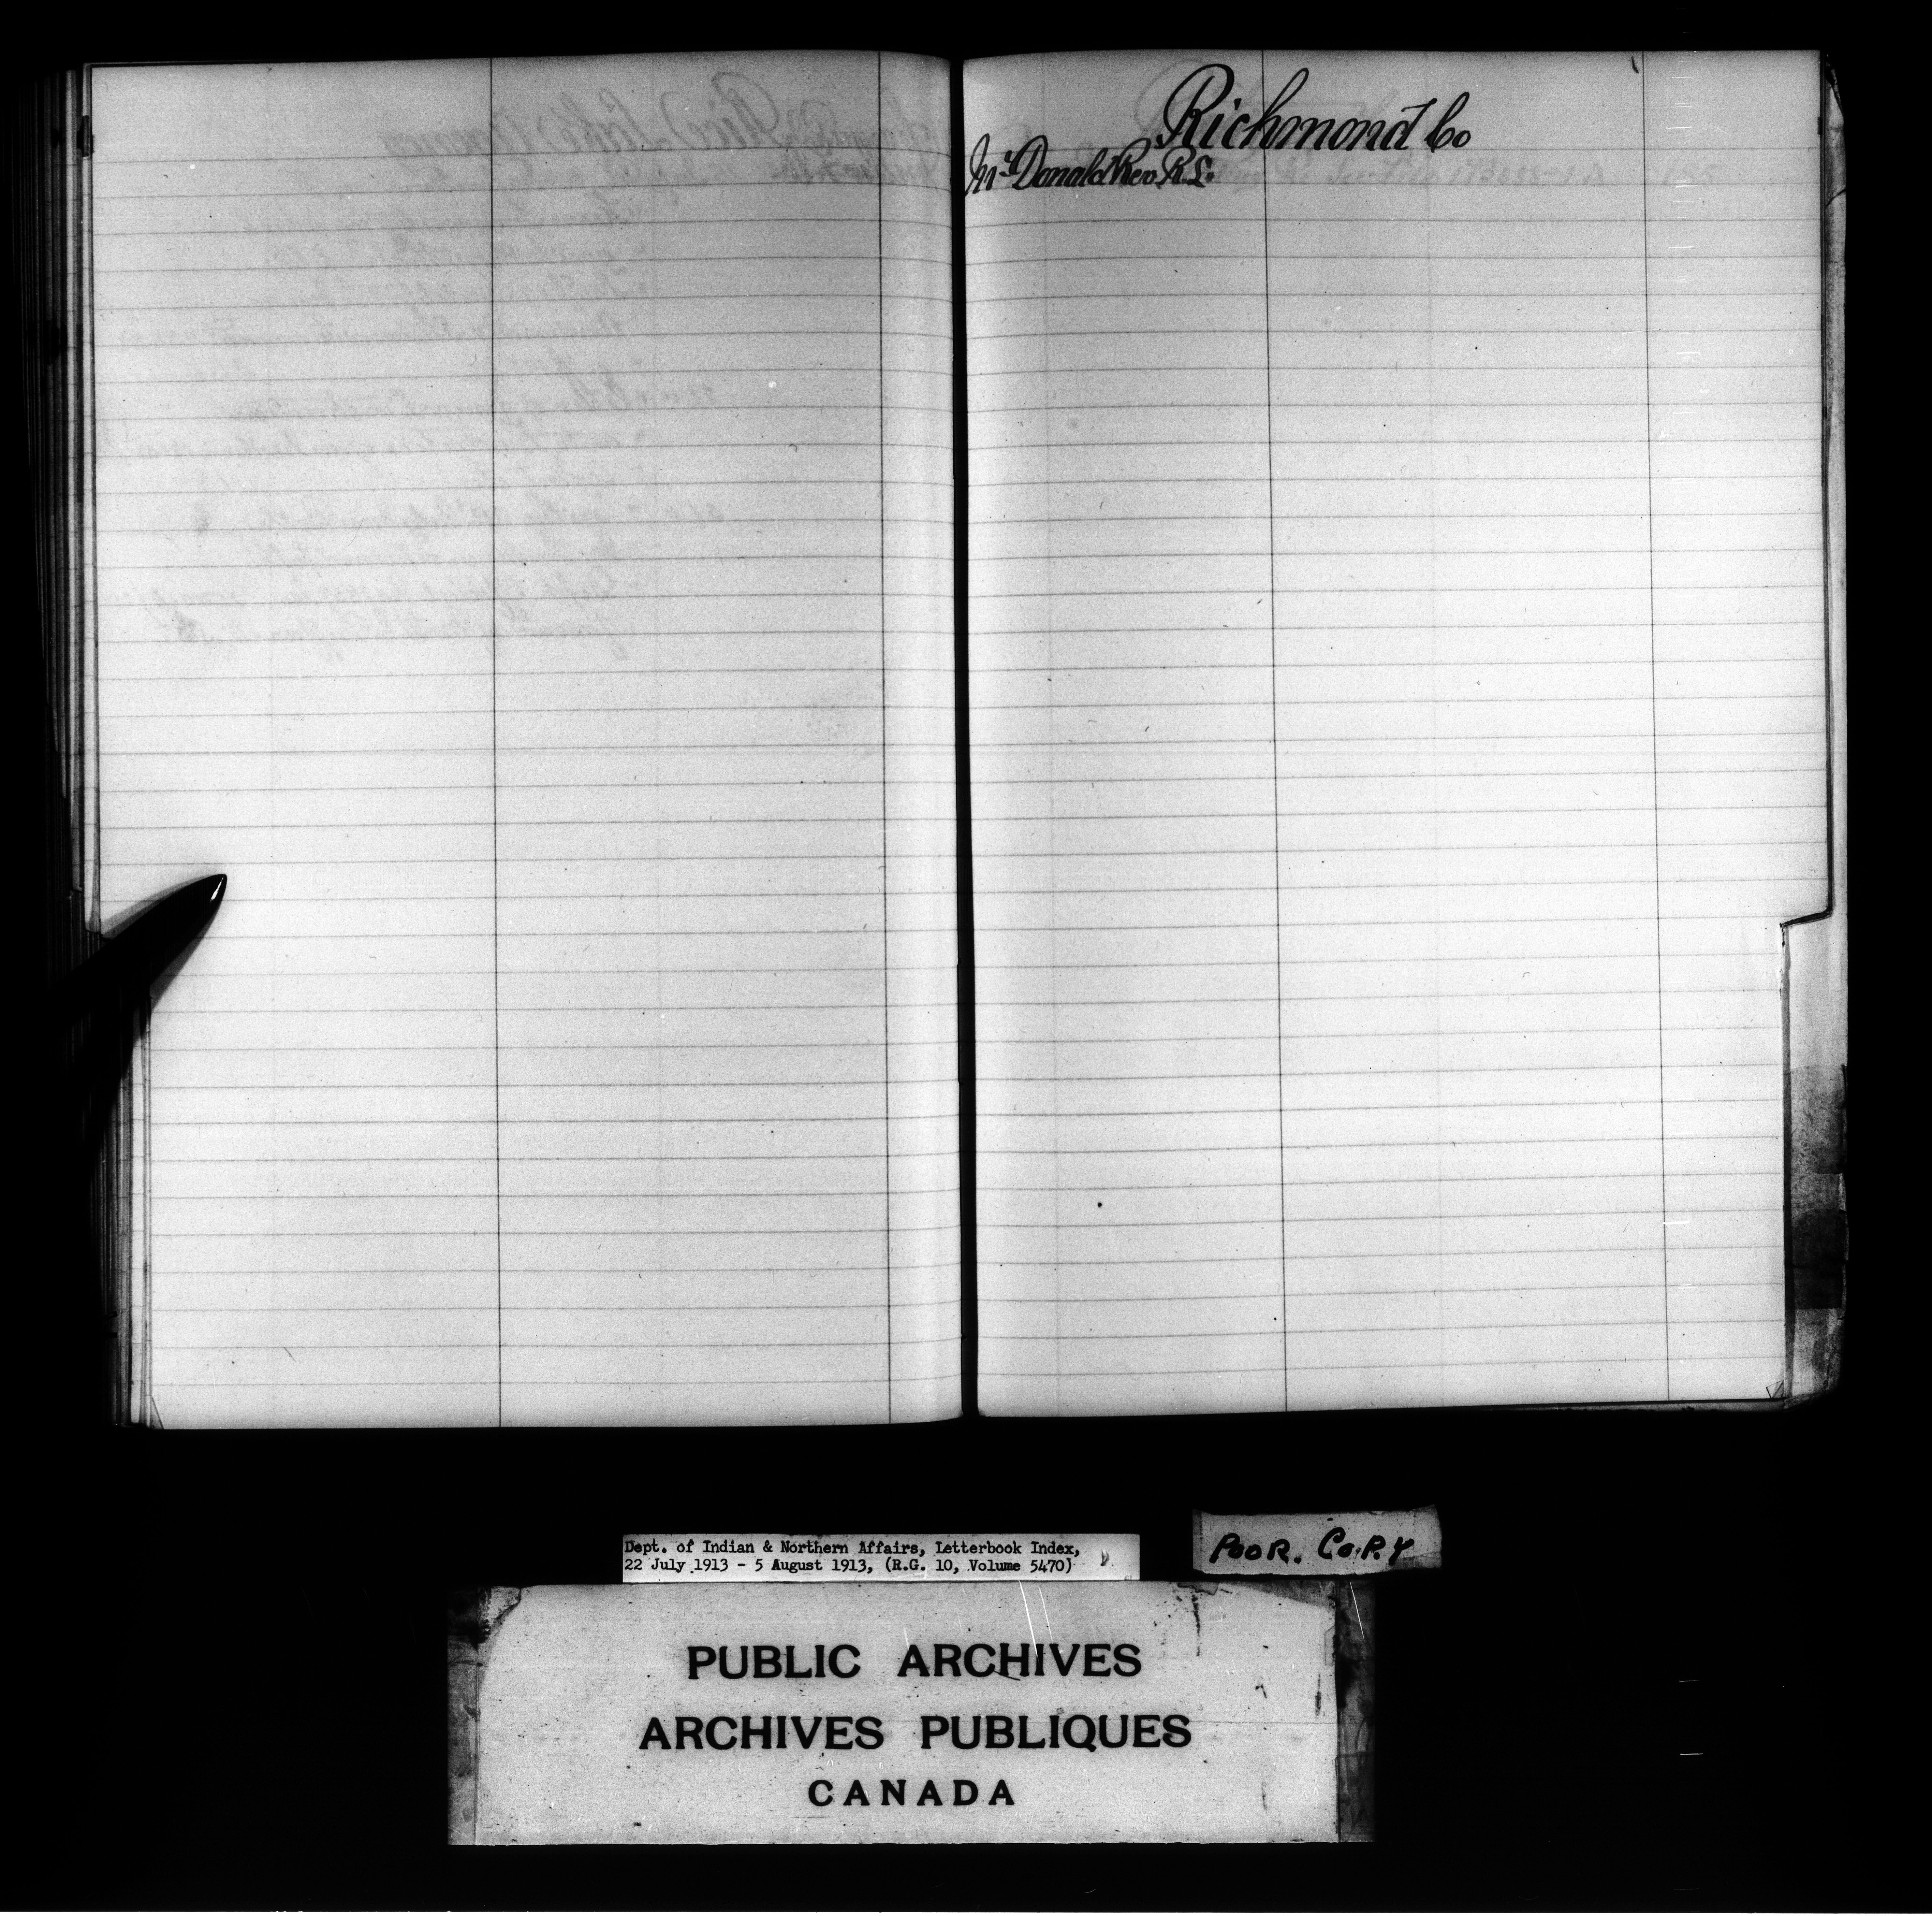 Richmond Co
McDonald Rev R.L.
Dept. of Indian & Northern Affairs, Letterbook Index,
22 July 1913 - 5 August 1913, (R.G. 10, Volume 5470)
POOR. COPY
PUBLIC ARCHIVES
ARCHIVES PUBLIQUES
CANADA